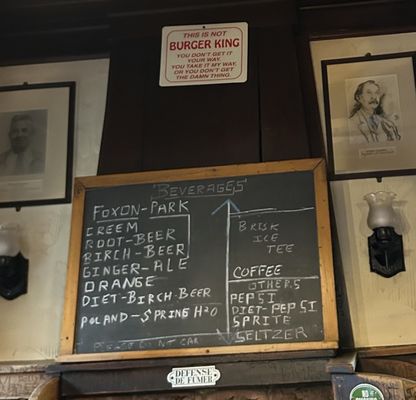 THIS IS NOT
BURGER KING
YOU DON'T GET IT
YOUR WAY.
YOU TAKE IT MY WAY,
OR YOU DON'T GET
THE DAMN THING.
BEVERAGES
FOXON-PARK
CREEM
ROOT-BEER
BIRCH-BEER
GINGER-ALE
ORANGE
DIET-BIRCH-BEER
POLAND-SPRING H2O
BRISK
ICE
TEE
COFFEE
OTHERS
PEPSI
DIET-PEPSI
SPRITE
SELTZER
DÉFENSE DE FUMER